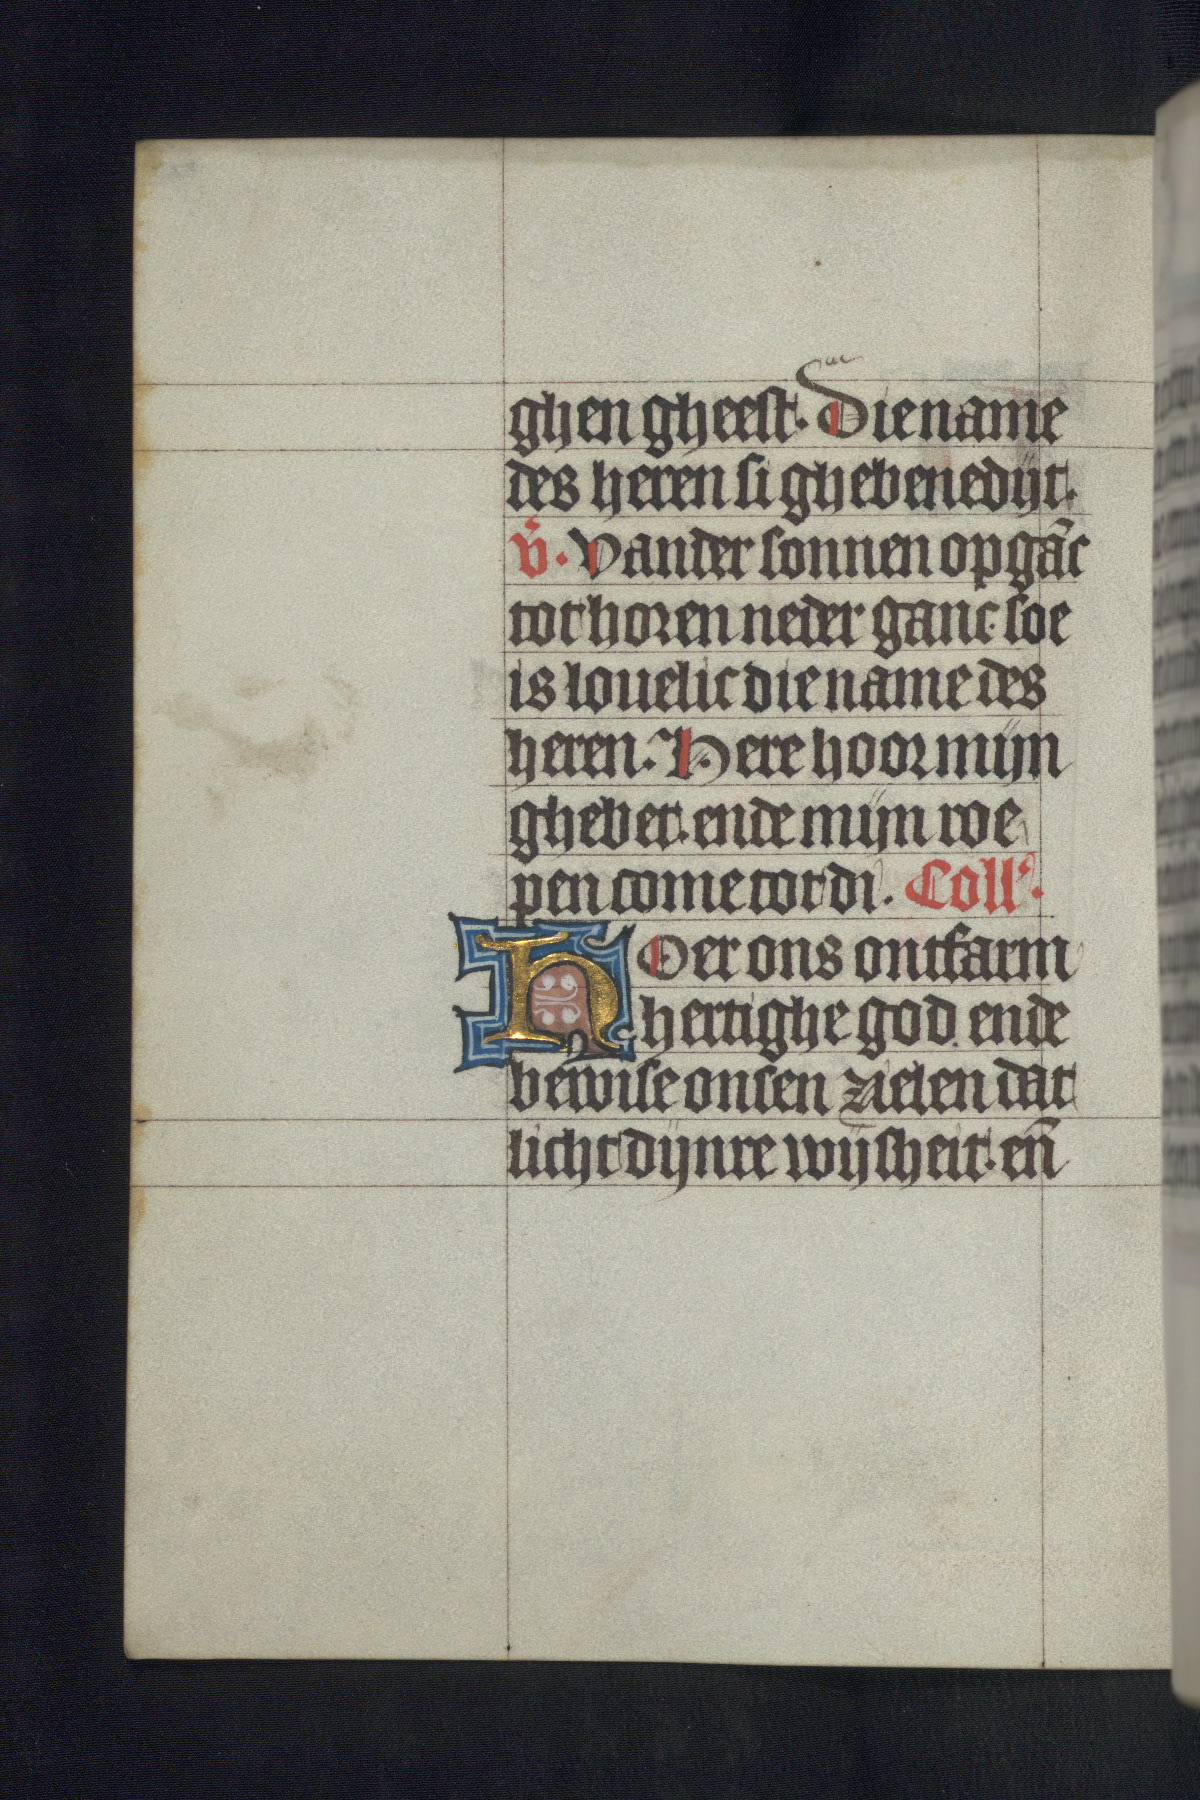 ghen gheest. Die name
des heren si ghebenedijt.
v̄. Vander sonnen opgāc
tot horen neder ganc. soe
is louelic die name des
heren. Here hoor mijn
ghebet. ende mijn roe
pen come tot di. Coll'.
HOer ons ontfarm
hertighe god. ende
bewise onsen zielen dat
licht dijnre wijsheit. en̄